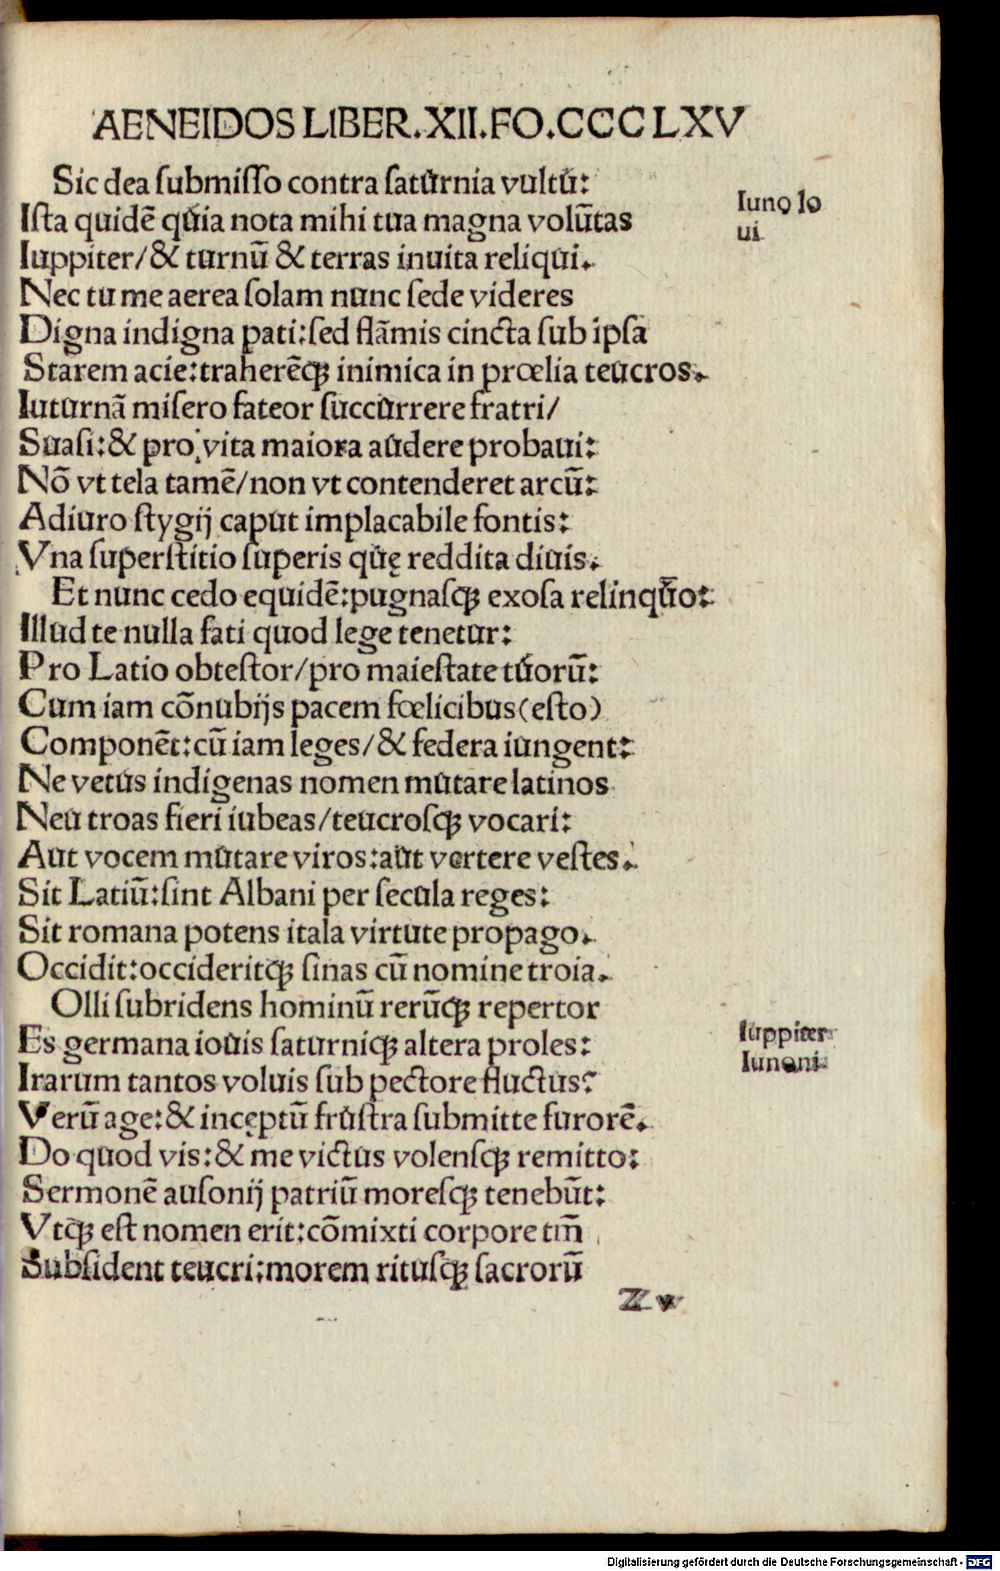 AENEIDOS LIBER.XII.FO.CCCLXV
Sic dea ſubmiſſo contra ſaturnia vultū:
Iuno Io
ui
Iſta quidē quia nota mihi tua magna volūtas
Iuppiter/& turnū & terras inuita reliqui.
Nec tu me aerea ſolam nunc ſede videres
Digna indigna pati:ſed flāmis cincta ſub ipſa
Starem acie:traherēqꝫ inimica in prœlia teucros.
Iuturnā miſero fateor ſuccurrere fratri/
Suaſi:& pro vita maiora audere probaui:
Nō vt tela tamē/non vt contenderet arcū:
Adiuro ſtygij caput implacabile fontis:
Vna ſuperſtitio ſuperis quę reddita diuis.
Et nunc cedo equidē:pugnaſqꝫ exoſa relinquo:
Illud te nulla fati quod lege tenetur:
Pro Latio obteſtor/pro maieſtate tuorū:
Cum iam cōnubijs pacem fœlicibus(eſto)
Componēt:cū iam leges/& federa iungent:
Ne vetus indigenas nomen mutare latinos
Neu troas fieri iubeas/teucroſqꝫ vocari:
Aut vocem mutare viros:aut vertere veſtes.
Sit Latiū:ſint Albani per ſecula reges:
Sit romana potens itala virtute propago.
Occidit:occideritqꝫ ſinas cū nomine troia.
Olli ſubridens hominū rerūqꝫ repertor
Iuppiter
Iunoni
Es germana iouis ſaturniqꝫ altera proles:
Irarum tantos voluis ſub pectore fluctus?
Verū age:& incęptū fruſtra ſubmitte furorē.
Do quod vis:& me victus volenſqꝫ remitto:
Sermonē auſonij patriū moreſqꝫ tenebūt:
Vtqꝫ eſt nomen erit:cōmixti corpore tm̄
Subſident teucri:morem rituſqꝫ ſacrorū
Z v
Digitalisierung gefördert durch die Deutsche Forschungsgemeinschaft - DFG